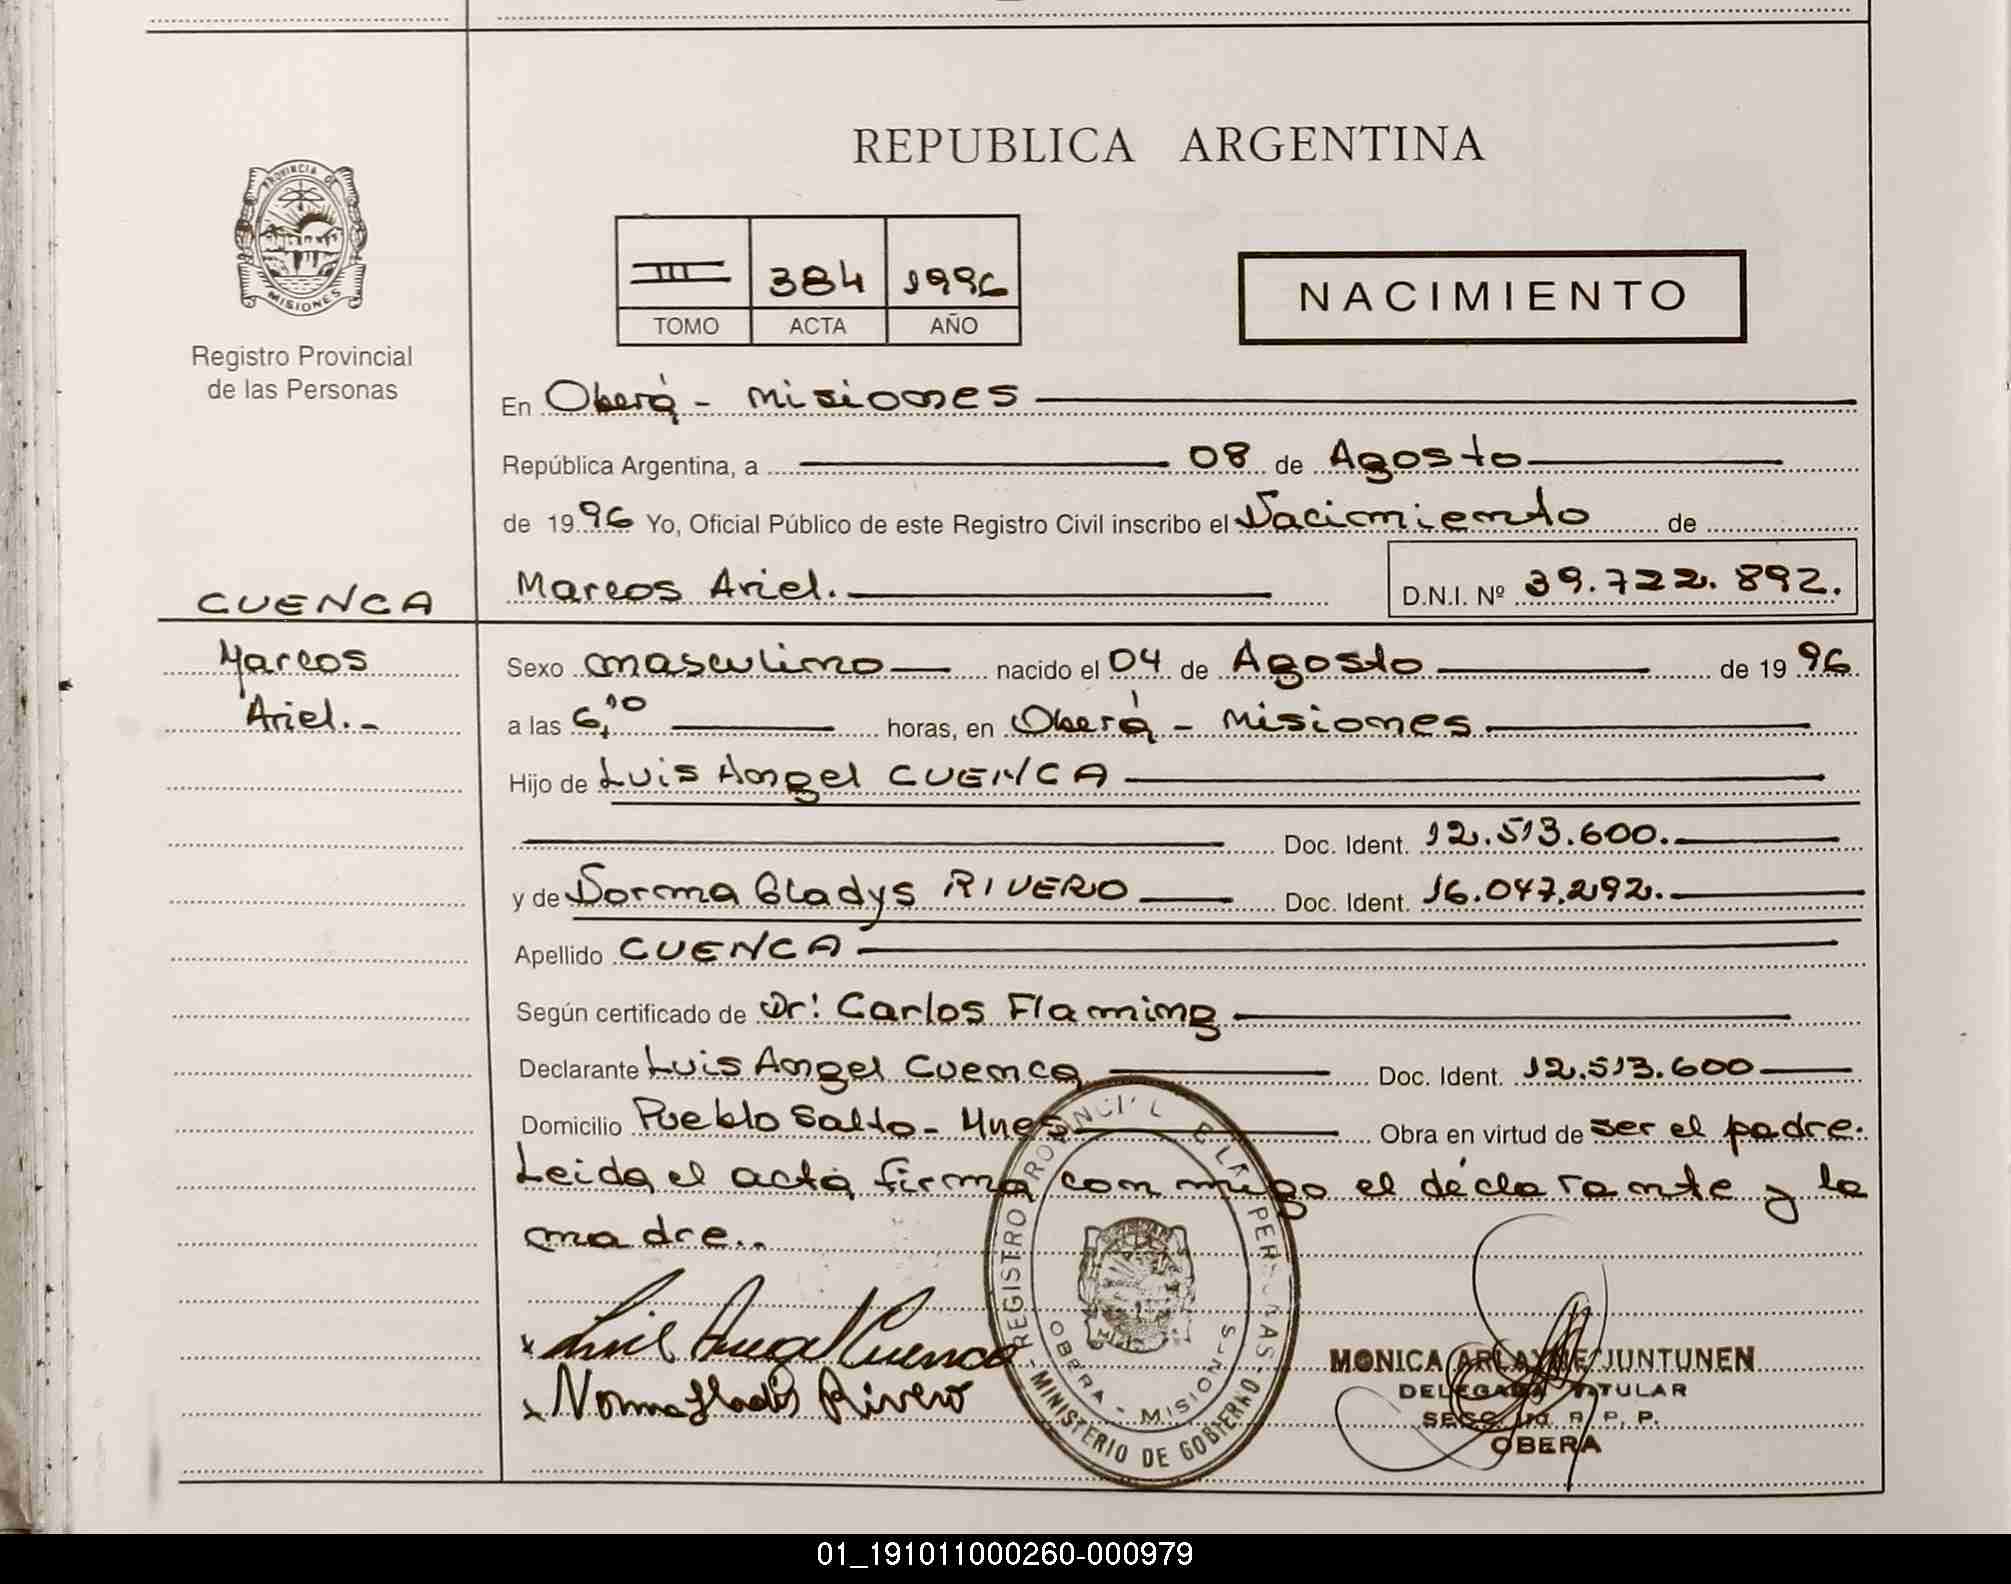 REPUBLICA ARGENTINA
PROVINCIA DE
MISIONES
Registro Provincial
de las Personas
III 384 1996
TOMO ACTA AÑO
NACIMIENTO
En Oberá - Misiones
República Argentina, a 08 de Agosto
de 1996 Yo, Oficial Público de este Registro Civil inscribo el Nacimiento de
Marcos Ariel. D.N.I. Nº 39.722.892.
CUENCA
Marcos
Ariel.-
Sexo masculino nacido el 04 de Agosto de 1996
a las 6,10 horas, en Oberá - Misiones
Hijo de Luis Angel CUENCA
Doc. Ident. 12.513.600.
y de Norma Gladys RIVERO Doc. Ident. 16.047.292.
Apellido CUENCA
Según certificado de Dr: Carlos Flaming
Declarante Luis Angel Cuenca Doc. Ident. 12.513.600
Domicilio Pueblo Salto - Mnes Obra en virtud de ser el padre.
Leida el acta firma con migo el declarante y la
madre..
x Luis Angel Cuenca
x Norma Gladis Rivero
REGISTRO PROVINCI L E LA PER AS
OBERA - MISION S
- MINISTERIO DE GOBIERNO -
MONICA ARLAYNE JUNTUNEN
DELEGADA TITULAR
SECC. R. P. P.
OBERA
01_191011000260-000979